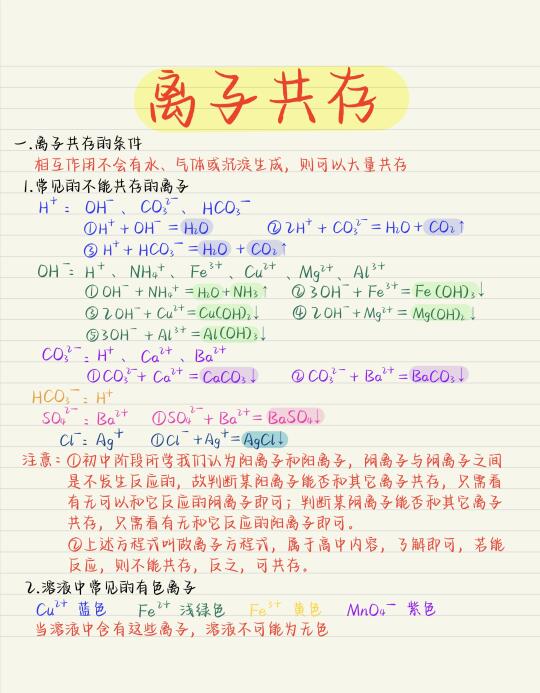 离子共存
一.离子共存的条件
相互作用不会有水、气体或沉淀生成，则可以大量共存
1.常见的不能共存的离子
H⁺：OH⁻、CO₃²⁻、HCO₃⁻
①H⁺+OH⁻=H₂O ②2H⁺+CO₃²⁻=H₂O+CO₂↑
③H⁺+HCO₃⁻=H₂O+CO₂↑
OH⁻：H⁺、NH₄⁺、Fe³⁺、Cu²⁺、Mg²⁺、Al³⁺
①OH⁻+NH₄⁺=H₂O+NH₃↑ ②3OH⁻+Fe³⁺=Fe(OH)₃↓
③2OH⁻+Cu²⁺=Cu(OH)₂↓ ④2OH⁻+Mg²⁺=Mg(OH)₂↓
⑤3OH⁻+Al³⁺=Al(OH)₃↓
CO₃²⁻：H⁺、Ca²⁺、Ba²⁺
①CO₃²⁻+Ca²⁺=CaCO₃↓ ②CO₃²⁻+Ba²⁺=BaCO₃↓
HCO₃⁻：H⁺
SO₄²⁻：Ba²⁺ ①SO₄²⁻+Ba²⁺=BaSO₄↓
Cl⁻：Ag⁺ ①Cl⁻+Ag⁺=AgCl↓
注意：①初中阶段所学我们认为阳离子和阳离子，阴离子与阴离子之间
是不发生反应的，故判断某阳离子能否和其它离子共存，只需看
有无可以和它反应的阴离子即可；判断某阴离子能否和其它离子
共存，只需看有无和它反应的阳离子即可。
②上述方程式叫做离子方程式，属于高中内容，了解即可，若能
反应，则不能共存，反之，可共存。
2.溶液中常见的有色离子
Cu²⁺ 蓝色 Fe²⁺ 浅绿色 Fe³⁺ 黄色 MnO₄⁻ 紫色
当溶液中含有这些离子，溶液不可能为无色